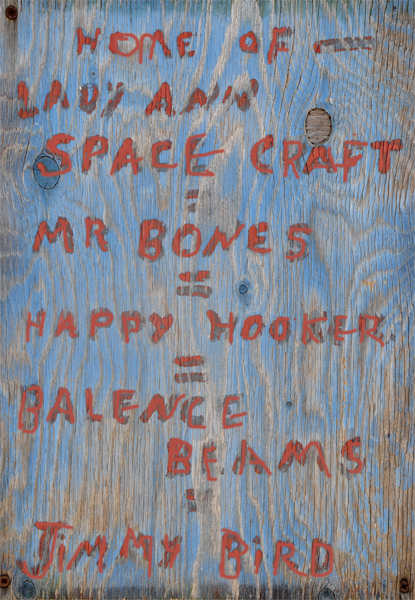 HOME OF —
LADY ANN
SPACE CRAFT
=
MR BONES
=
HAPPY HOOKER
=
BALENCE
BEAMS
JiMMY BiRD